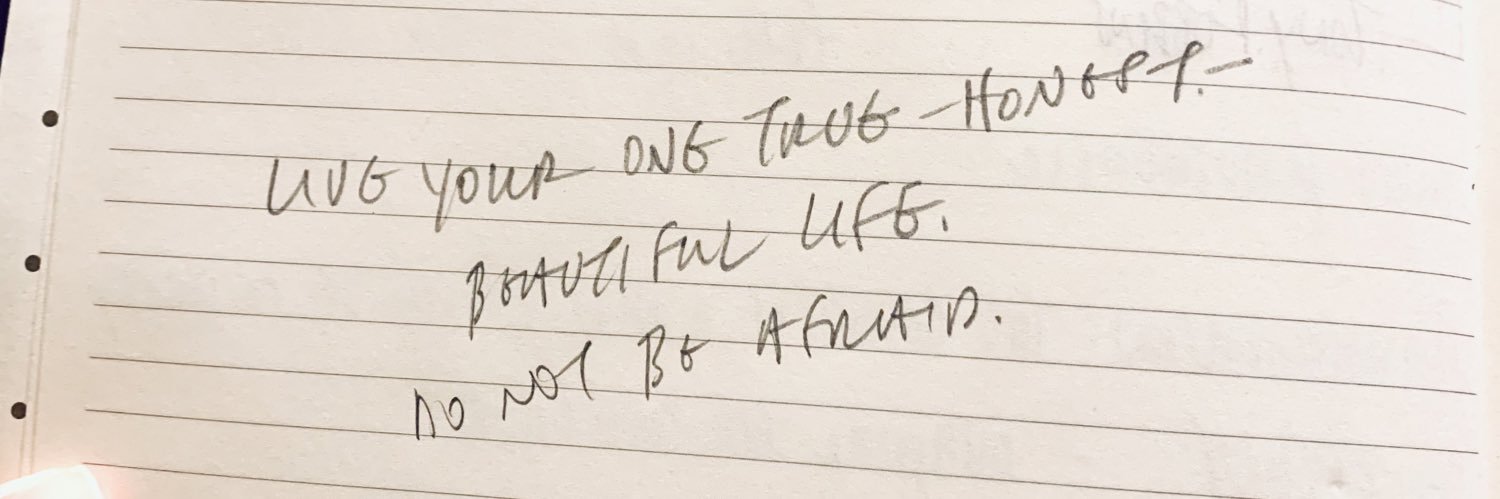 LIVE YOUR ONE TRUE - HONEST. -
BEAUTIFUL LIFE.
DO NOT BE AFRAID.